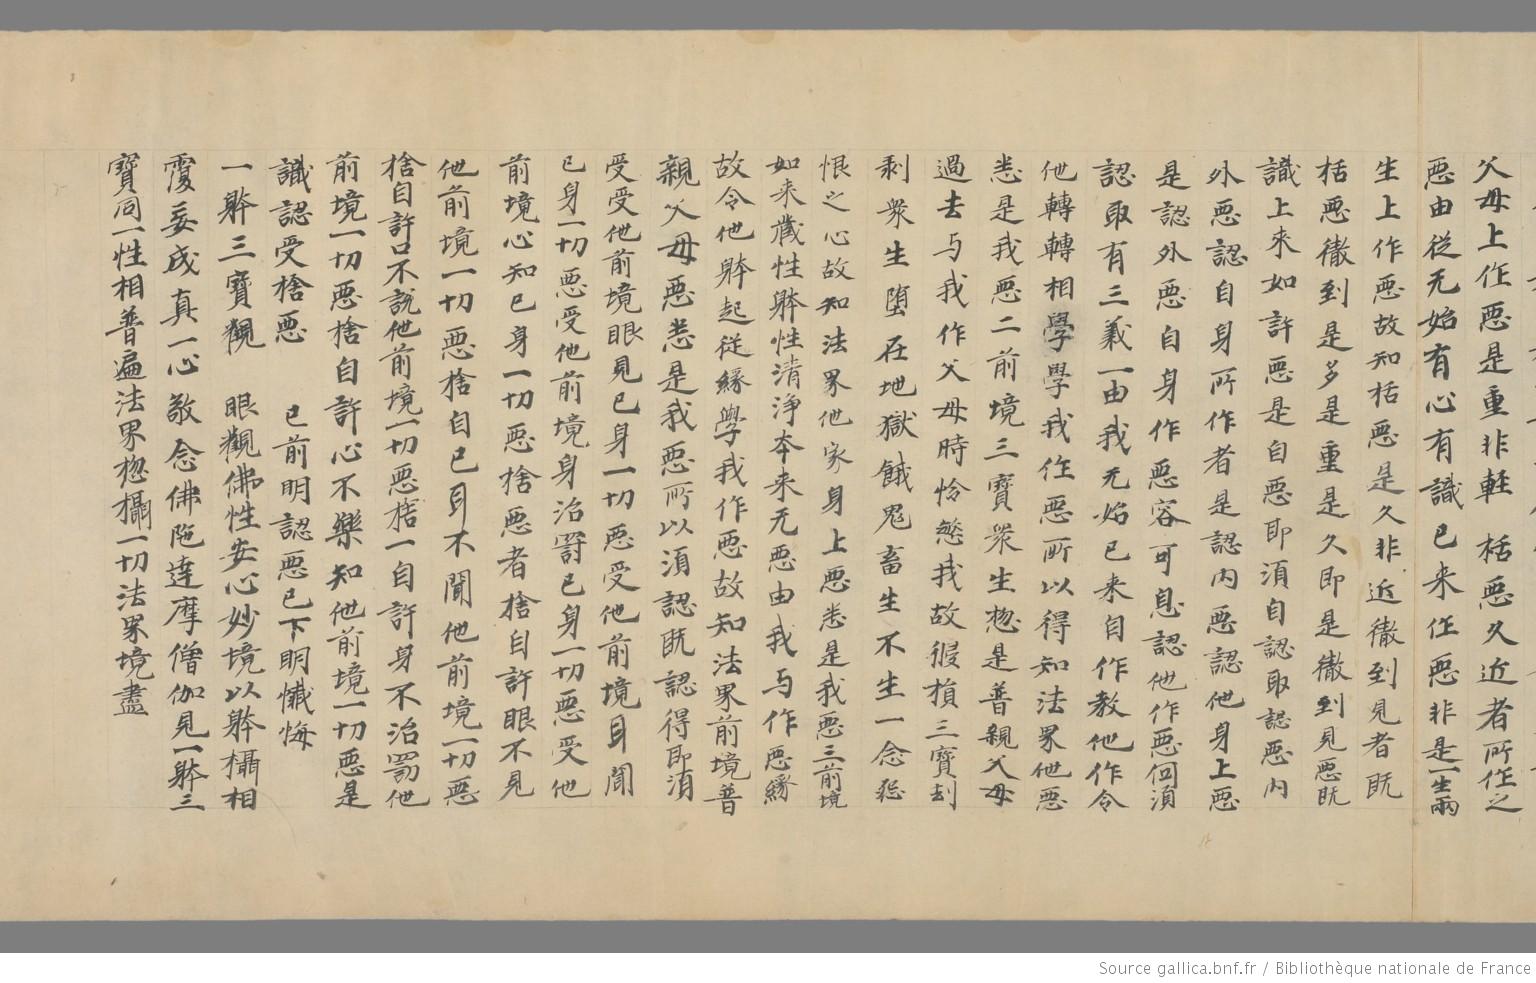 父母上作惡是重非軽栝惡久近者所作之
惡由從无始有心有識已来作惡非是一生兩
生上作惡故知栝惡是久非近徹到見者既
栝惡徹到是多是重是久即是徹到見惡既
識上来如許惡是自惡即須自認取認惡内
外惡認自身所作者是認内惡認他身上惡
是認外惡自身作惡容可息認他作惡何須
認取有三義一由我无始已来自作教他作令
他轉轉相學學我作惡所以得知法界他惡
悉是我惡二前境三寶衆生惣是普親父母
過去与我作父母時怜愍我故假損三寶刦
剥衆生堕在地獄餓鬼畜生不生一念怨
恨之心故知法界他家身上惡悉是我惡三前境
如来蔵性躰性清浄本来无惡由我与作惡緣
故令他躰起従緣學我作惡故知法界前境普
親父母惡悉是我惡所以須認既認得即須
受受他前境眼見已身一切惡受他前境耳聞
已身一切惡受他前境身治罸已身一切惡受他
前境心知已身一切惡捨惡者捨自許眼不見
他前境一切惡捨自已耳不聞他前境一切惡
捨自許口不說他前境一切惡捨一自許身不治罰他
前境一切惡捨自許心不樂知他前境一切惡是
識認受捨惡 已前明認惡已下明懺悔
一躰三寶觀 眼觀佛性安心妙境以躰攝相
霞妄成真一心敬念佛陁達摩僧伽見一躰三
寶同一性相普遍法界惣攝一切法界境盡
Source gallica.bnf.fr / Bibliothèque nationale de France